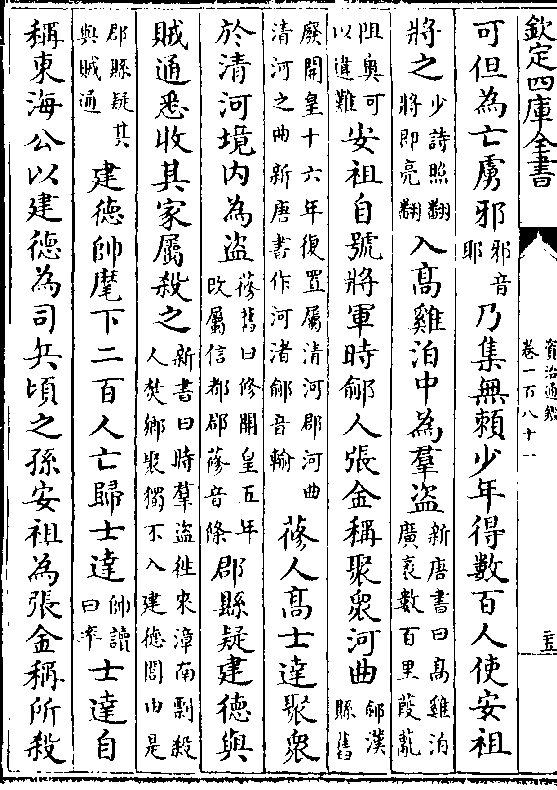 欽定四庫全書
資治通鑑
卷一百八十一
二五
可但為亡虜邪邪音耶乃集無賴少年得數百人使安祖
將之少詩照翻將即亮翻入髙雞泊中為羣盜新唐書曰髙雞泊廣袤數百里葭薍
阻奥可以違難安祖自號將軍時鄃人張金稱聚衆河曲鄃漢縣舊
廢開皇十六年復置屬清河郡河曲清河之曲新唐書作河渚鄃音輸蓨人髙士達聚衆
於清河境内為盗蓨舊曰修開皇五年改屬信都郡蓨音條郡縣疑建德與
賊通悉收其家屬殺之新書曰時羣盗徃來漳南剽殺人焚鄉聚獨不入建德閭由是
郡縣疑其與賊通建德帥麾下二百人亡歸士達帥讀曰率士達自
稱東海公以建德為司兵頃之孫安祖為張金稱所殺